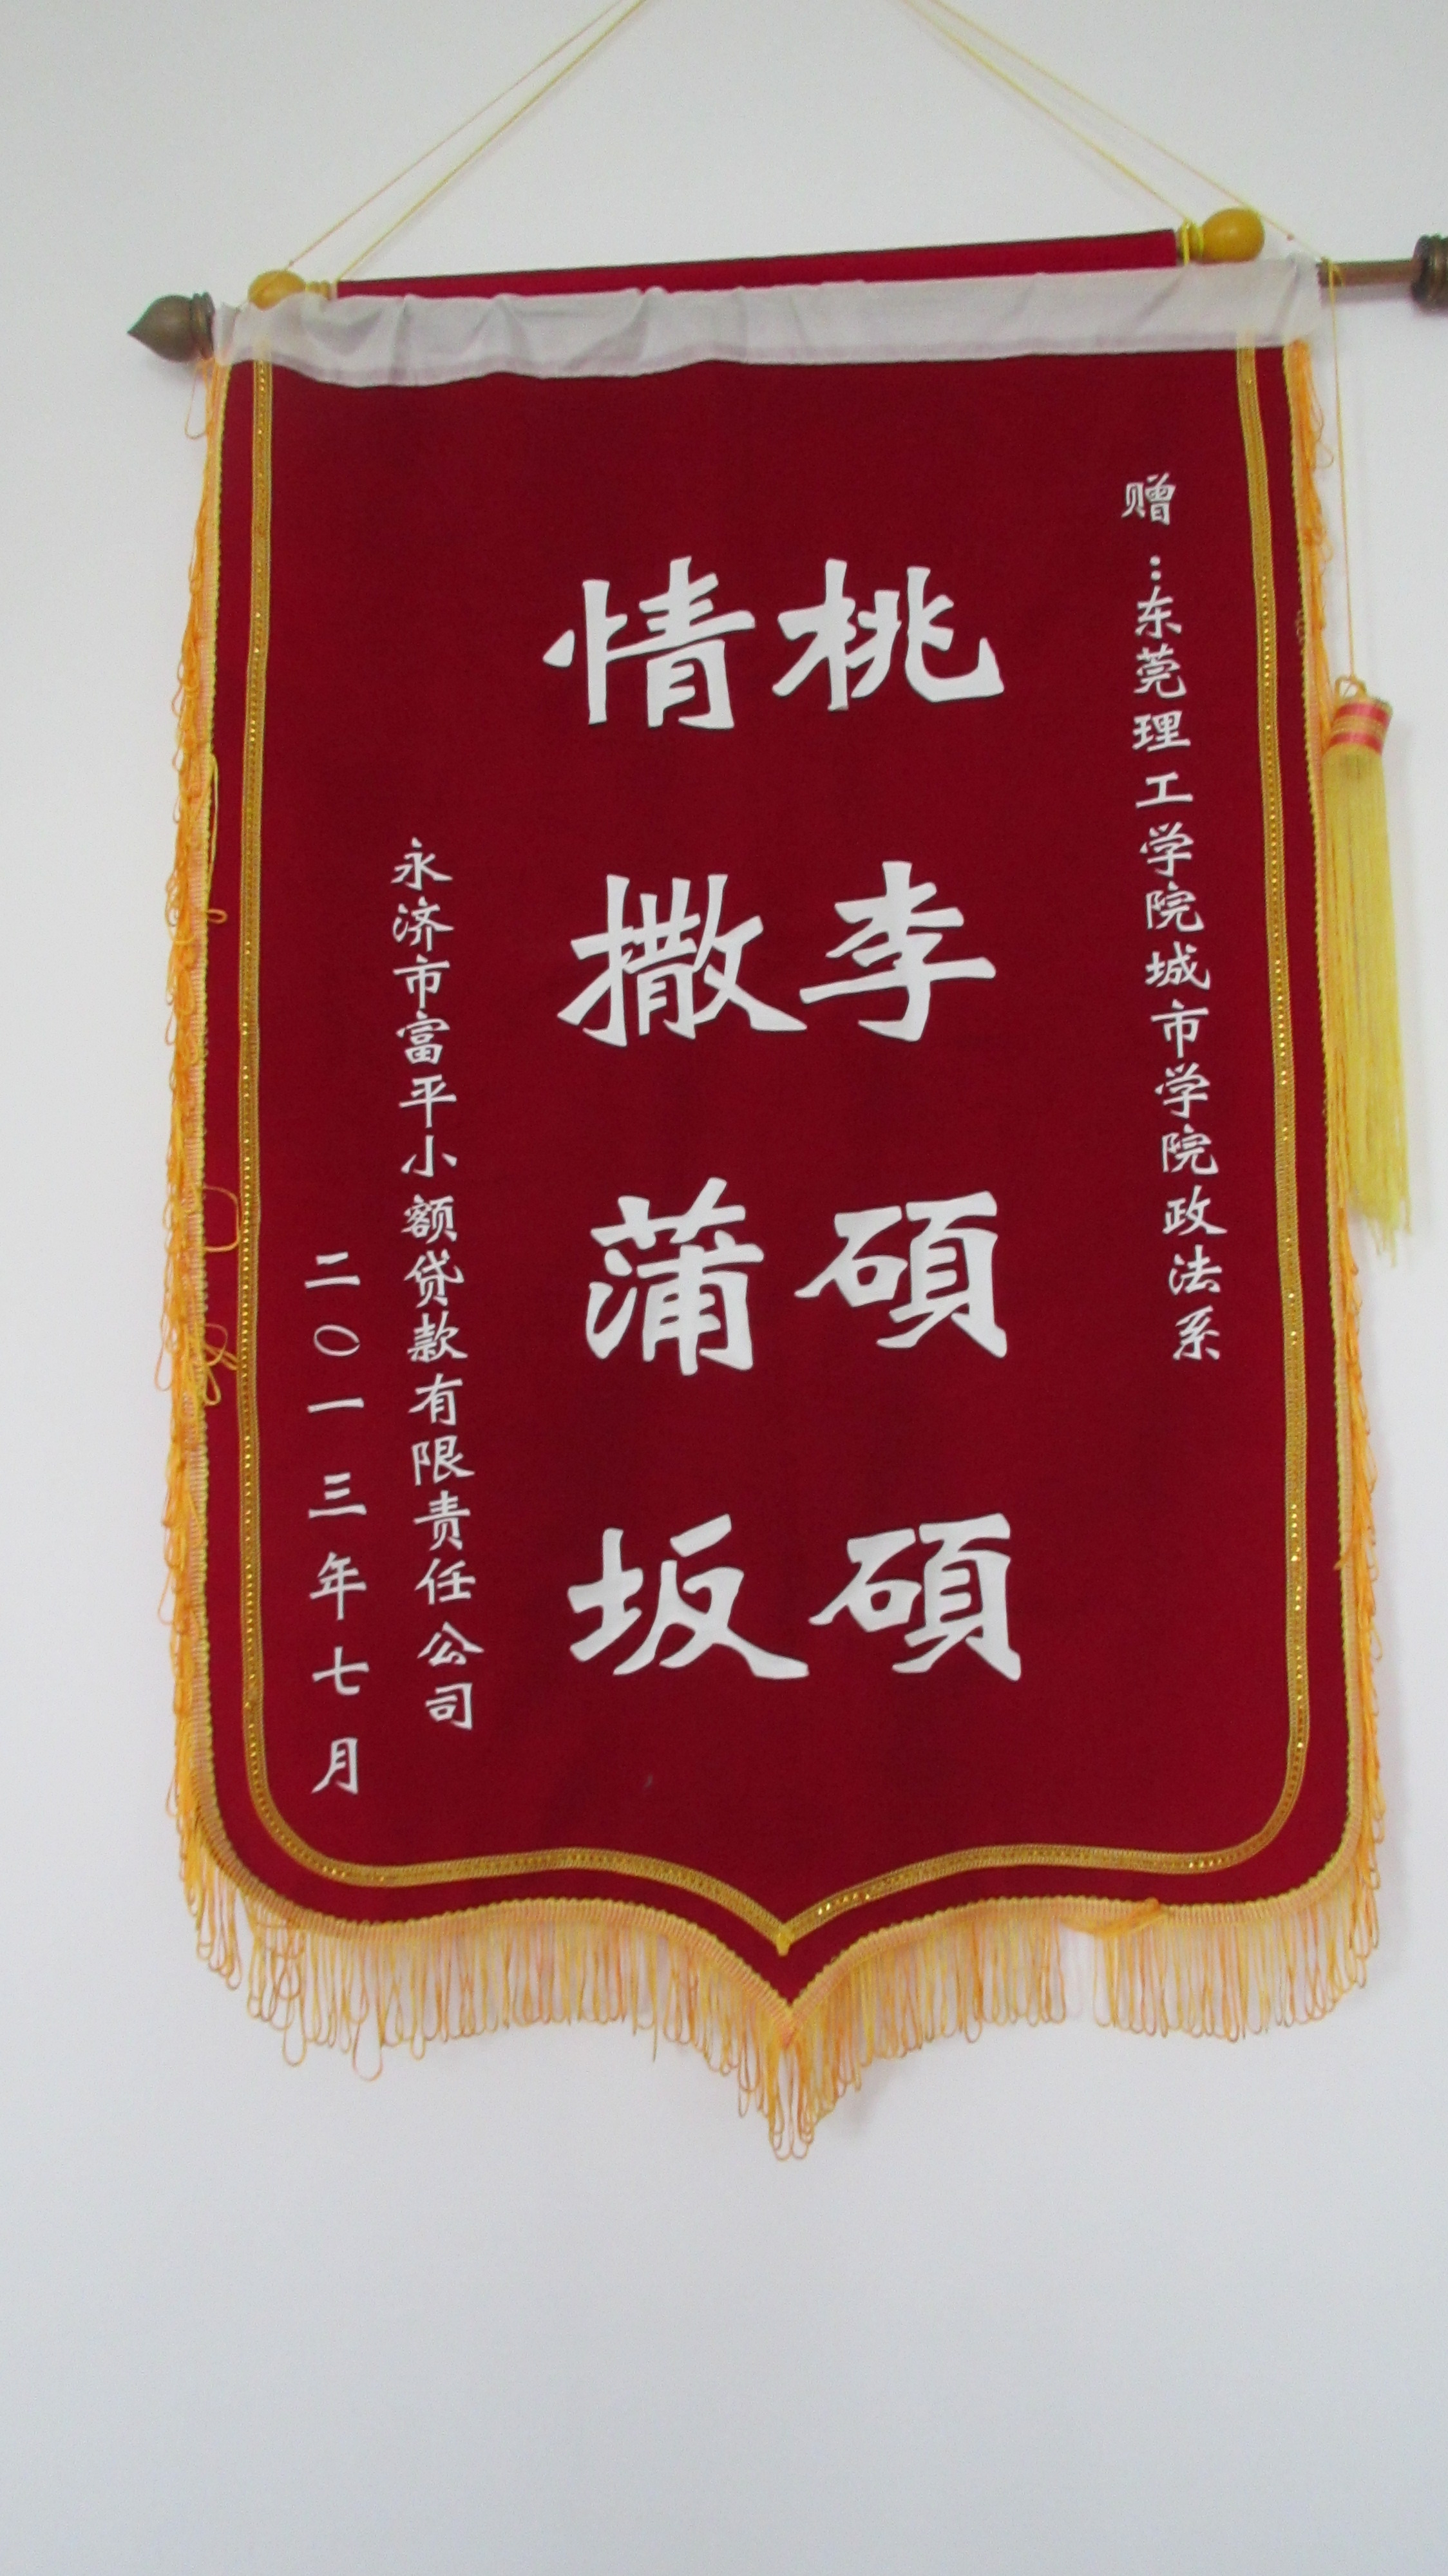 赠：东莞理工学院城市学院政法系
桃李硕硕
情撒蒲坂
永济市富平小额贷款有限责任公司
二〇一三年七月